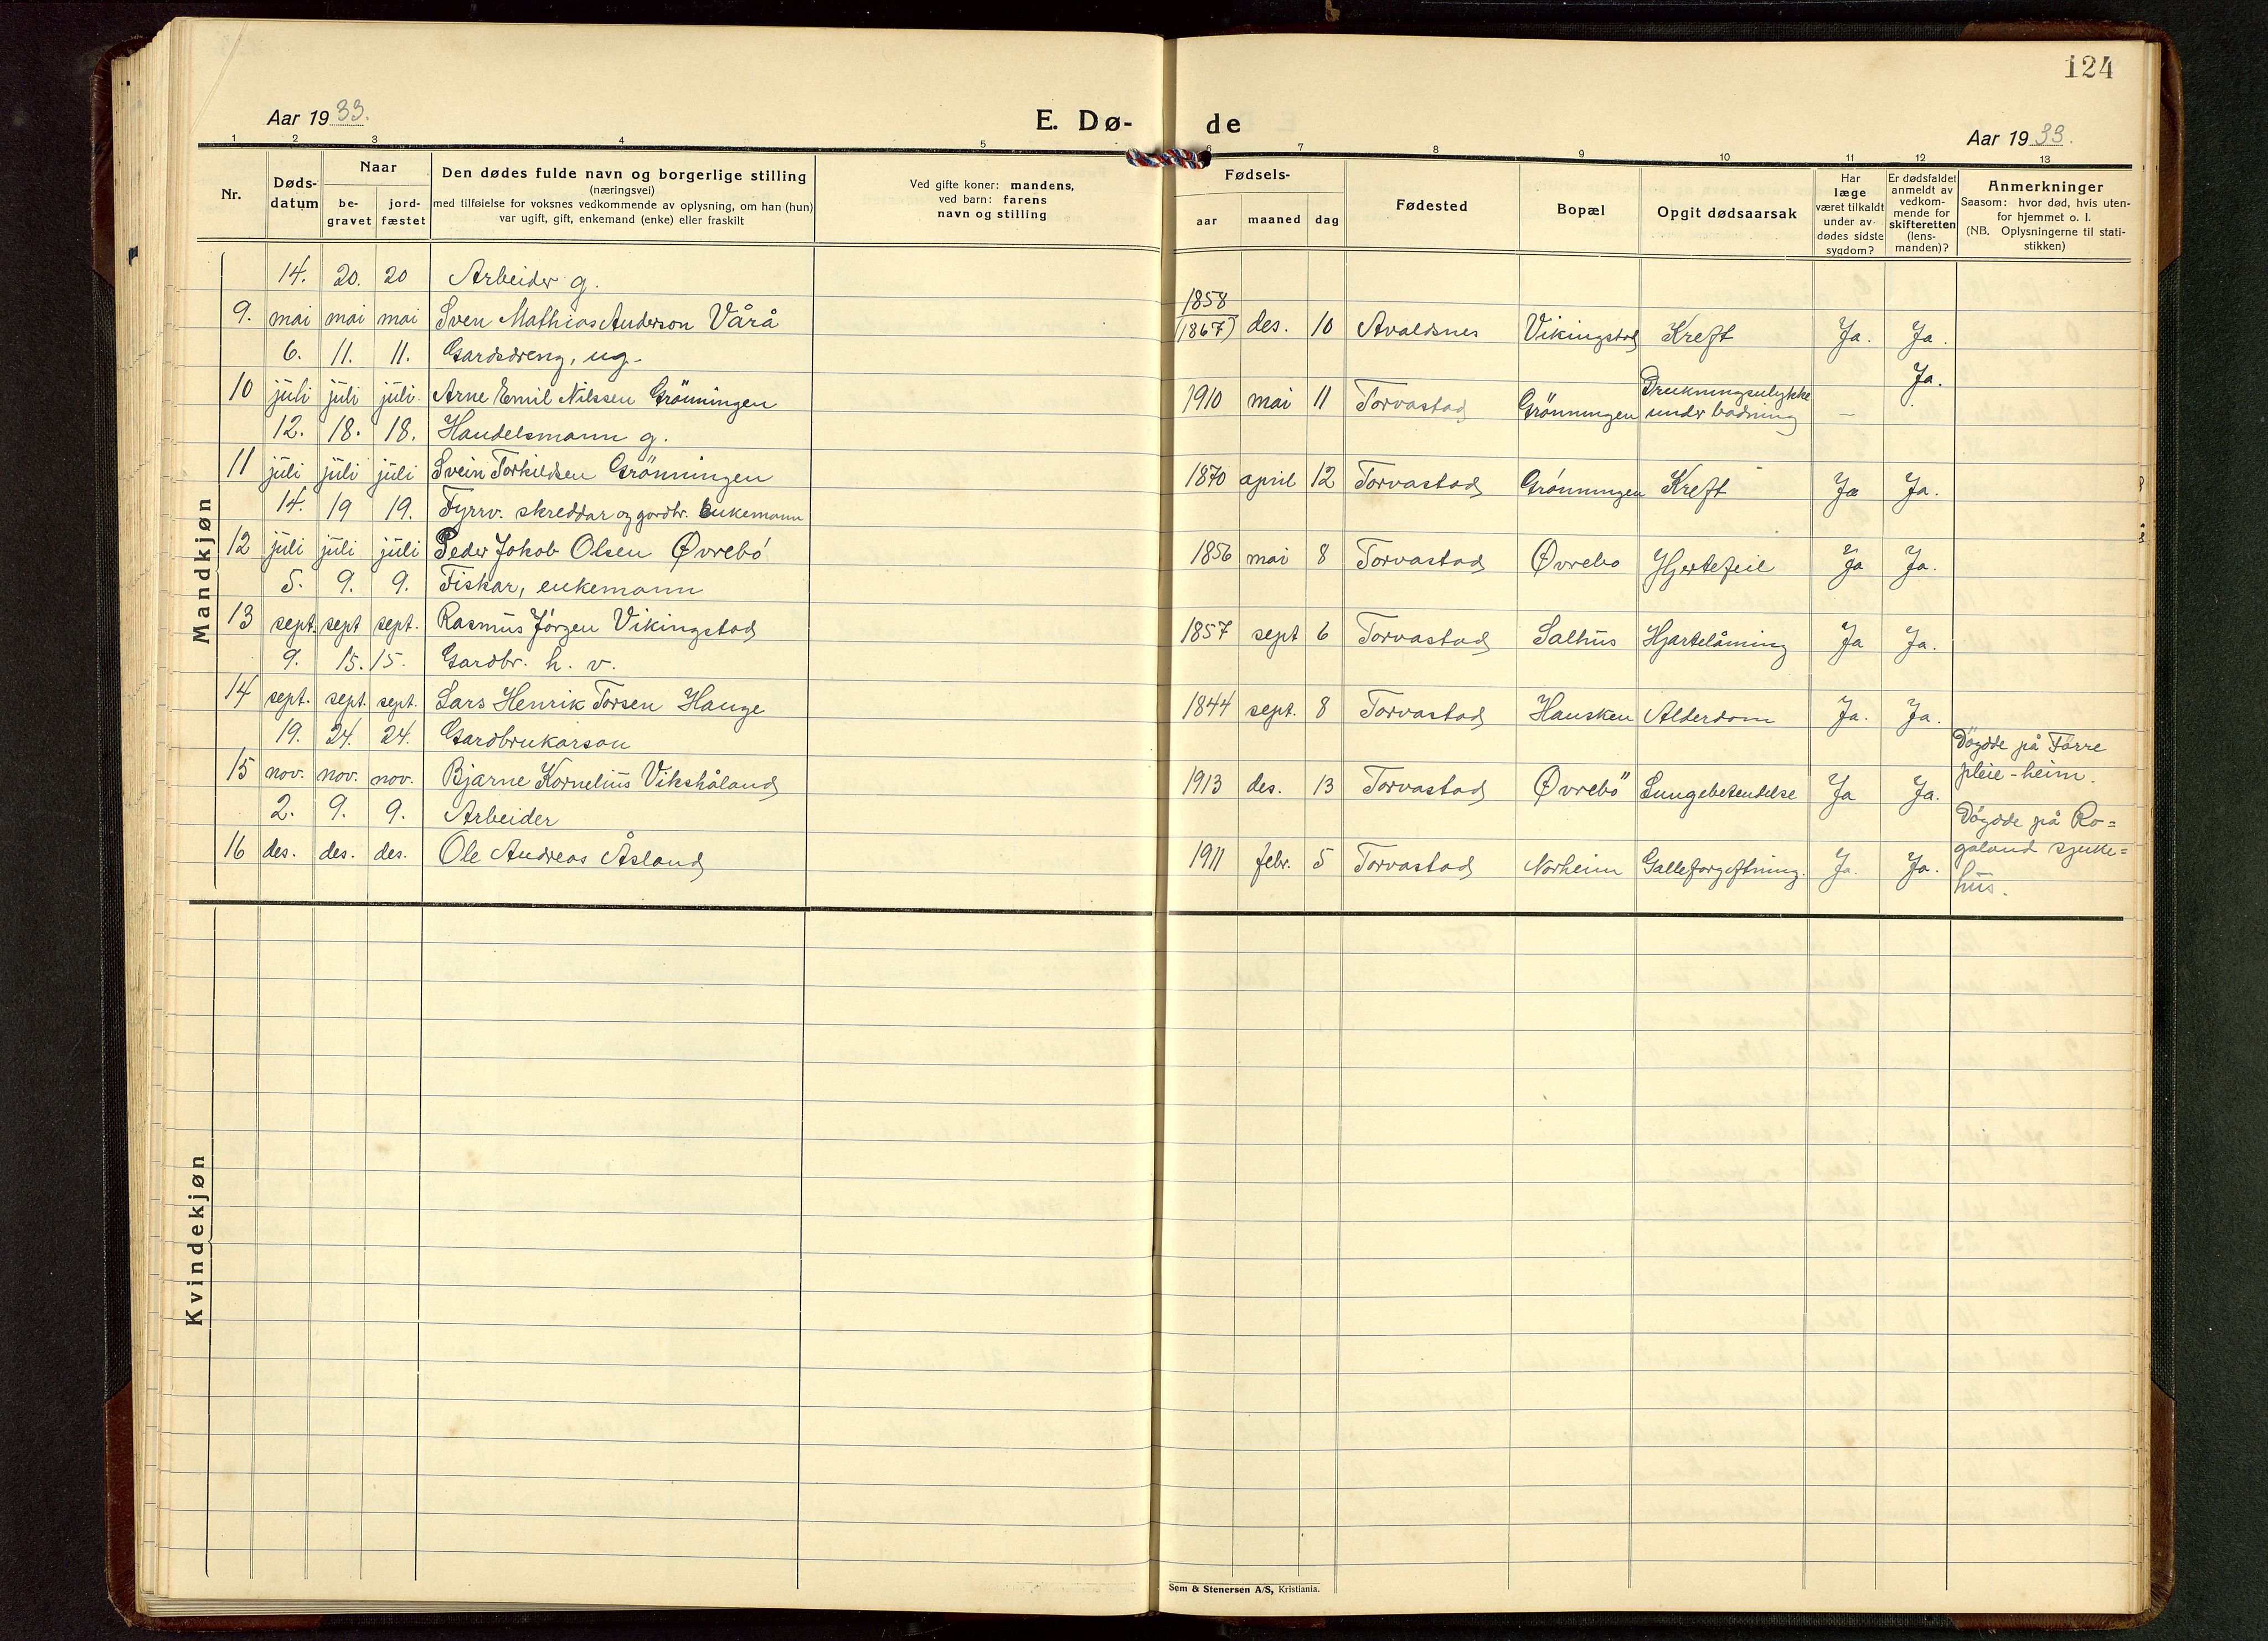 124
Aar 1933.
E. Dø-
de
Aar 1933.
1 2 3 4 5 6 7 8 9 10 11 12 13
Nr.
Døds-
datum
Naar
be-
gravet
jord-
fæstet
Den dødes fulde navn og borgerlige stilling
(næringsvei)
med tilføielse for voksnes vedkommende av oplysning, om han (hun)
var ugift, gift, enkemand (enke) eller fraskilt
Ved gifte koner: mandens,
ved barn: farens
navn og stilling
Fødsels-
aar
maaned
dag
Fødested
Bopæl
Opgit dødsaarsak
Har
læge
været tilkaldt
under av-
dødes sidste
sygdom?
Er dødsfaldet
anmeldt av
vedkom-
mende for
skifteretten
(lens-
manden)?
Anmerkninger
Saasom: hvor død, hvis uten-
for hjemmet o. l.
(NB. Oplysningerne til stati-
stikken)
Mandkjøn
14. 20. 20 Arbeider g.
1858
9. mai mai mai Sven Mathias Anderson Vårå (1867) des. 10 Avaldsnes Vikingstad Kreft Ja. Ja.
6. 11. 11. Gardsdreng, ug.
Drukningsulykke Ja.
10 juli juli juli. Arne Emil Nilssen Grönningen 1910 mai 11 Torvastad Grönningen under badning —
12. 18. 18. Handelsmann g.
11 juli juli juli Svein Torkildsen Grönningen 1870 april 12 Torvastad Grönningen Kreft Ja Ja.
14. 19 19. Fyrrv. skreddar og gardbr. Enkemann
12 juli juli juli Peder Jakob Olsen Øvrebö 1856 mai 8 Torvastad Øvrebo Hjertefeil Ja Ja.
5. 9. 9. Fiskar, enkemann
13 sept. sept sept. Rasmus Jörgen Vikingstad 1857 sept 6 Torvastad Salhus Hjartelåming Ja Ja.
9. 15. 15. Gardbr. h. v.
14 sept. sept. sept. Lars Henrik Torsen Hauge 1844 sept. 8 Torvastad Hausken Alderdom Ja. Ja.
19. 24. 24. Gardbrukarson Döydde på Förre
15 nov. nov. nov. Bjarne Kornelius Vikshåland 1913 des. 13 Torvastad Øvrebö Lungebetendelse Ja Ja. pleie-heim.
2. 9. 9. Arbeider Döydde på Ro=
16 des. des. des. Ole Andreas Åsland 1911 febr. 5 Torvastad Norheim Galleforgiftning. Ja. Ja. galand sjuke=
hus.
Kvindekjøn
Sem & Stenersen A/S, Kristiania.